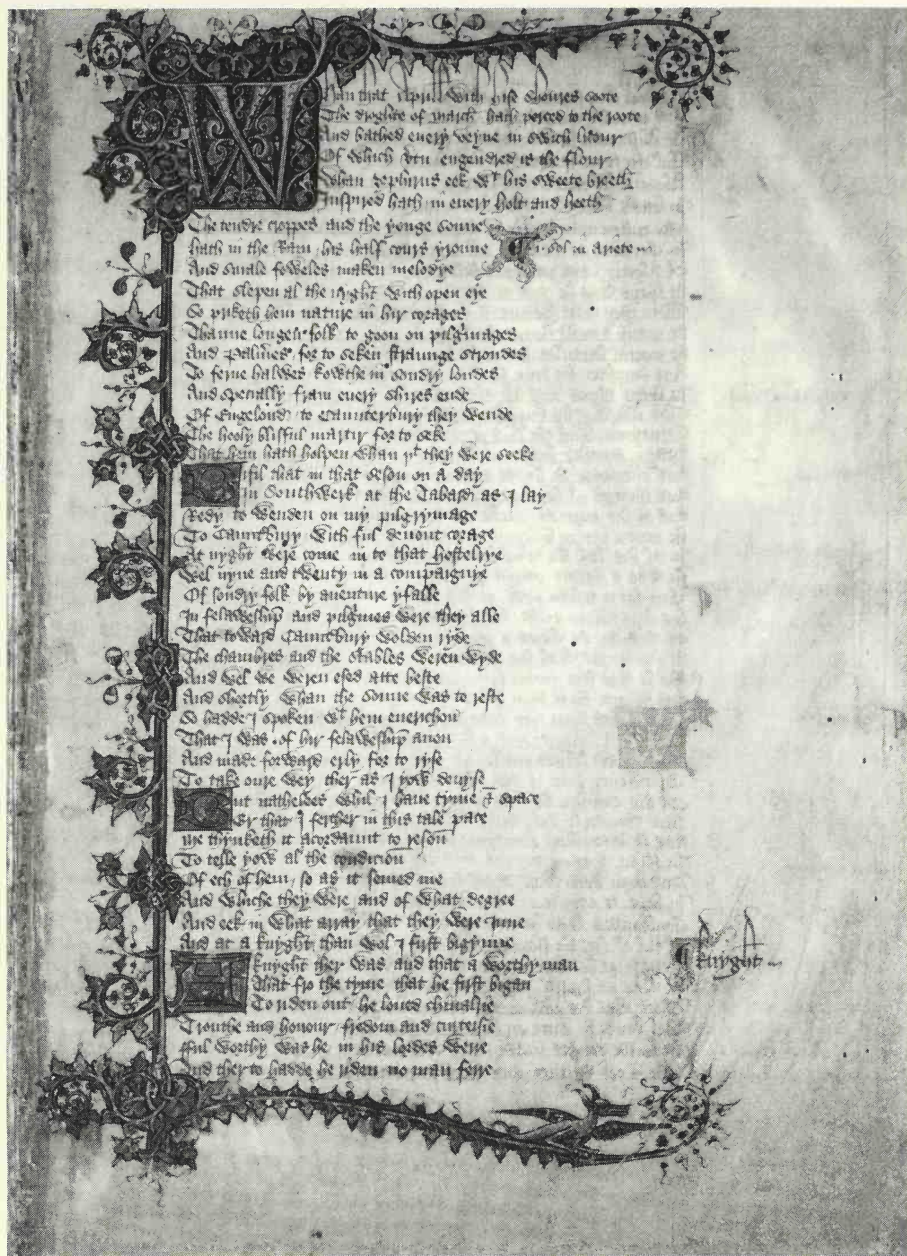 Whan that Aprill with hise shoures soote
The droghte of March hath perced to the roote
And bathed every veyne in swich licour
Of which vtu engendred is the flour
Whan Zephirus eek wᵗ his sweete breeth
Inspired hath in every holt and heeth
The tendre croppes and the yonge sonne
hath in the Ram his half cours yronne ¶ i. sol in Ariete
And smale foweles maken melodye
That slepen al the nyght with open eye
So priketh hem nature in hir corages
Thanne longen folk to goon on pilgrimages
And Palmeres for to seken straunge strondes
To ferne halwes kowthe in sondry londes
And specially fram every shires ende
Of Engelond to Caunterbury they wende
The hooly blisful martir for to seke
That hem hath holpen whan yᵗ they were seeke
Bifil that in that seson on a day
In Southwerk at the Tabard as I lay
Redy to wenden on my pilgrymage
To Caunt̉bury with ful devout corage
At nyght were come in to that hostelrye
Wel nyne and twenty in a compaignye
Of sondry folk by aventure yfalle
In felaweshipe and pilgrimes were they alle
That toward Caunt̉bury wolden ryde
The chambres and the stables weren wyde
And wel we weren esed atte beste
And shortly whan the sonne was to reste
So hadde I spoken wᵗ hem everichon
That I was of hir felaweshipe anon
And made forward erly for to ryse
To take oure wey ther as I yow devyse
But nathelees whil I have tyme & space
Er that I ferther in this tale pace
Me thynketh it acordaunt to reson
To telle yow al the condicion
Of ech of hem so as it semed me
And whiche they were and of what degree
And eek in what array that they were inne
And at a knyght than wol I first bigynne
A knyght ther was and that a worthy man ¶ knyght
That fro the tyme that he first bigan
To riden out he loved chivalrie
Trouthe and honour fredom and curteisie
fful worthy was he in his lordes werre
And ther to hadde he riden no man ferre